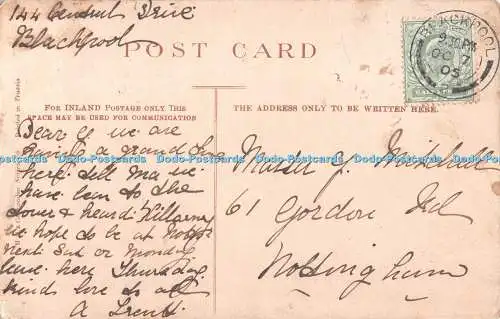 144 Central Drive
Blackpool
POST CARD
BLACKPOOL
9.30 PM
OC 7
05
FOR INLAND POSTAGE ONLY THIS
SPACE MAY BE USED FOR COMMUNICATION
THE ADDRESS ONLY TO BE WRITTEN HERE.
Dear G we are
having a grand time
here tell Ma we
have been to the
Tower & heard Killarney
we hope to be at Nottm
next Sat or Monday
leave here Thursday
kinds love to all
A Trent
Master G. Mitchell
61 Gordon Rd
Nottingham
Dodo-Postcards Dodo-Postcards Dodo-Postcards Dodo-Postcards Dodo-Postcards Dodo-Postcards